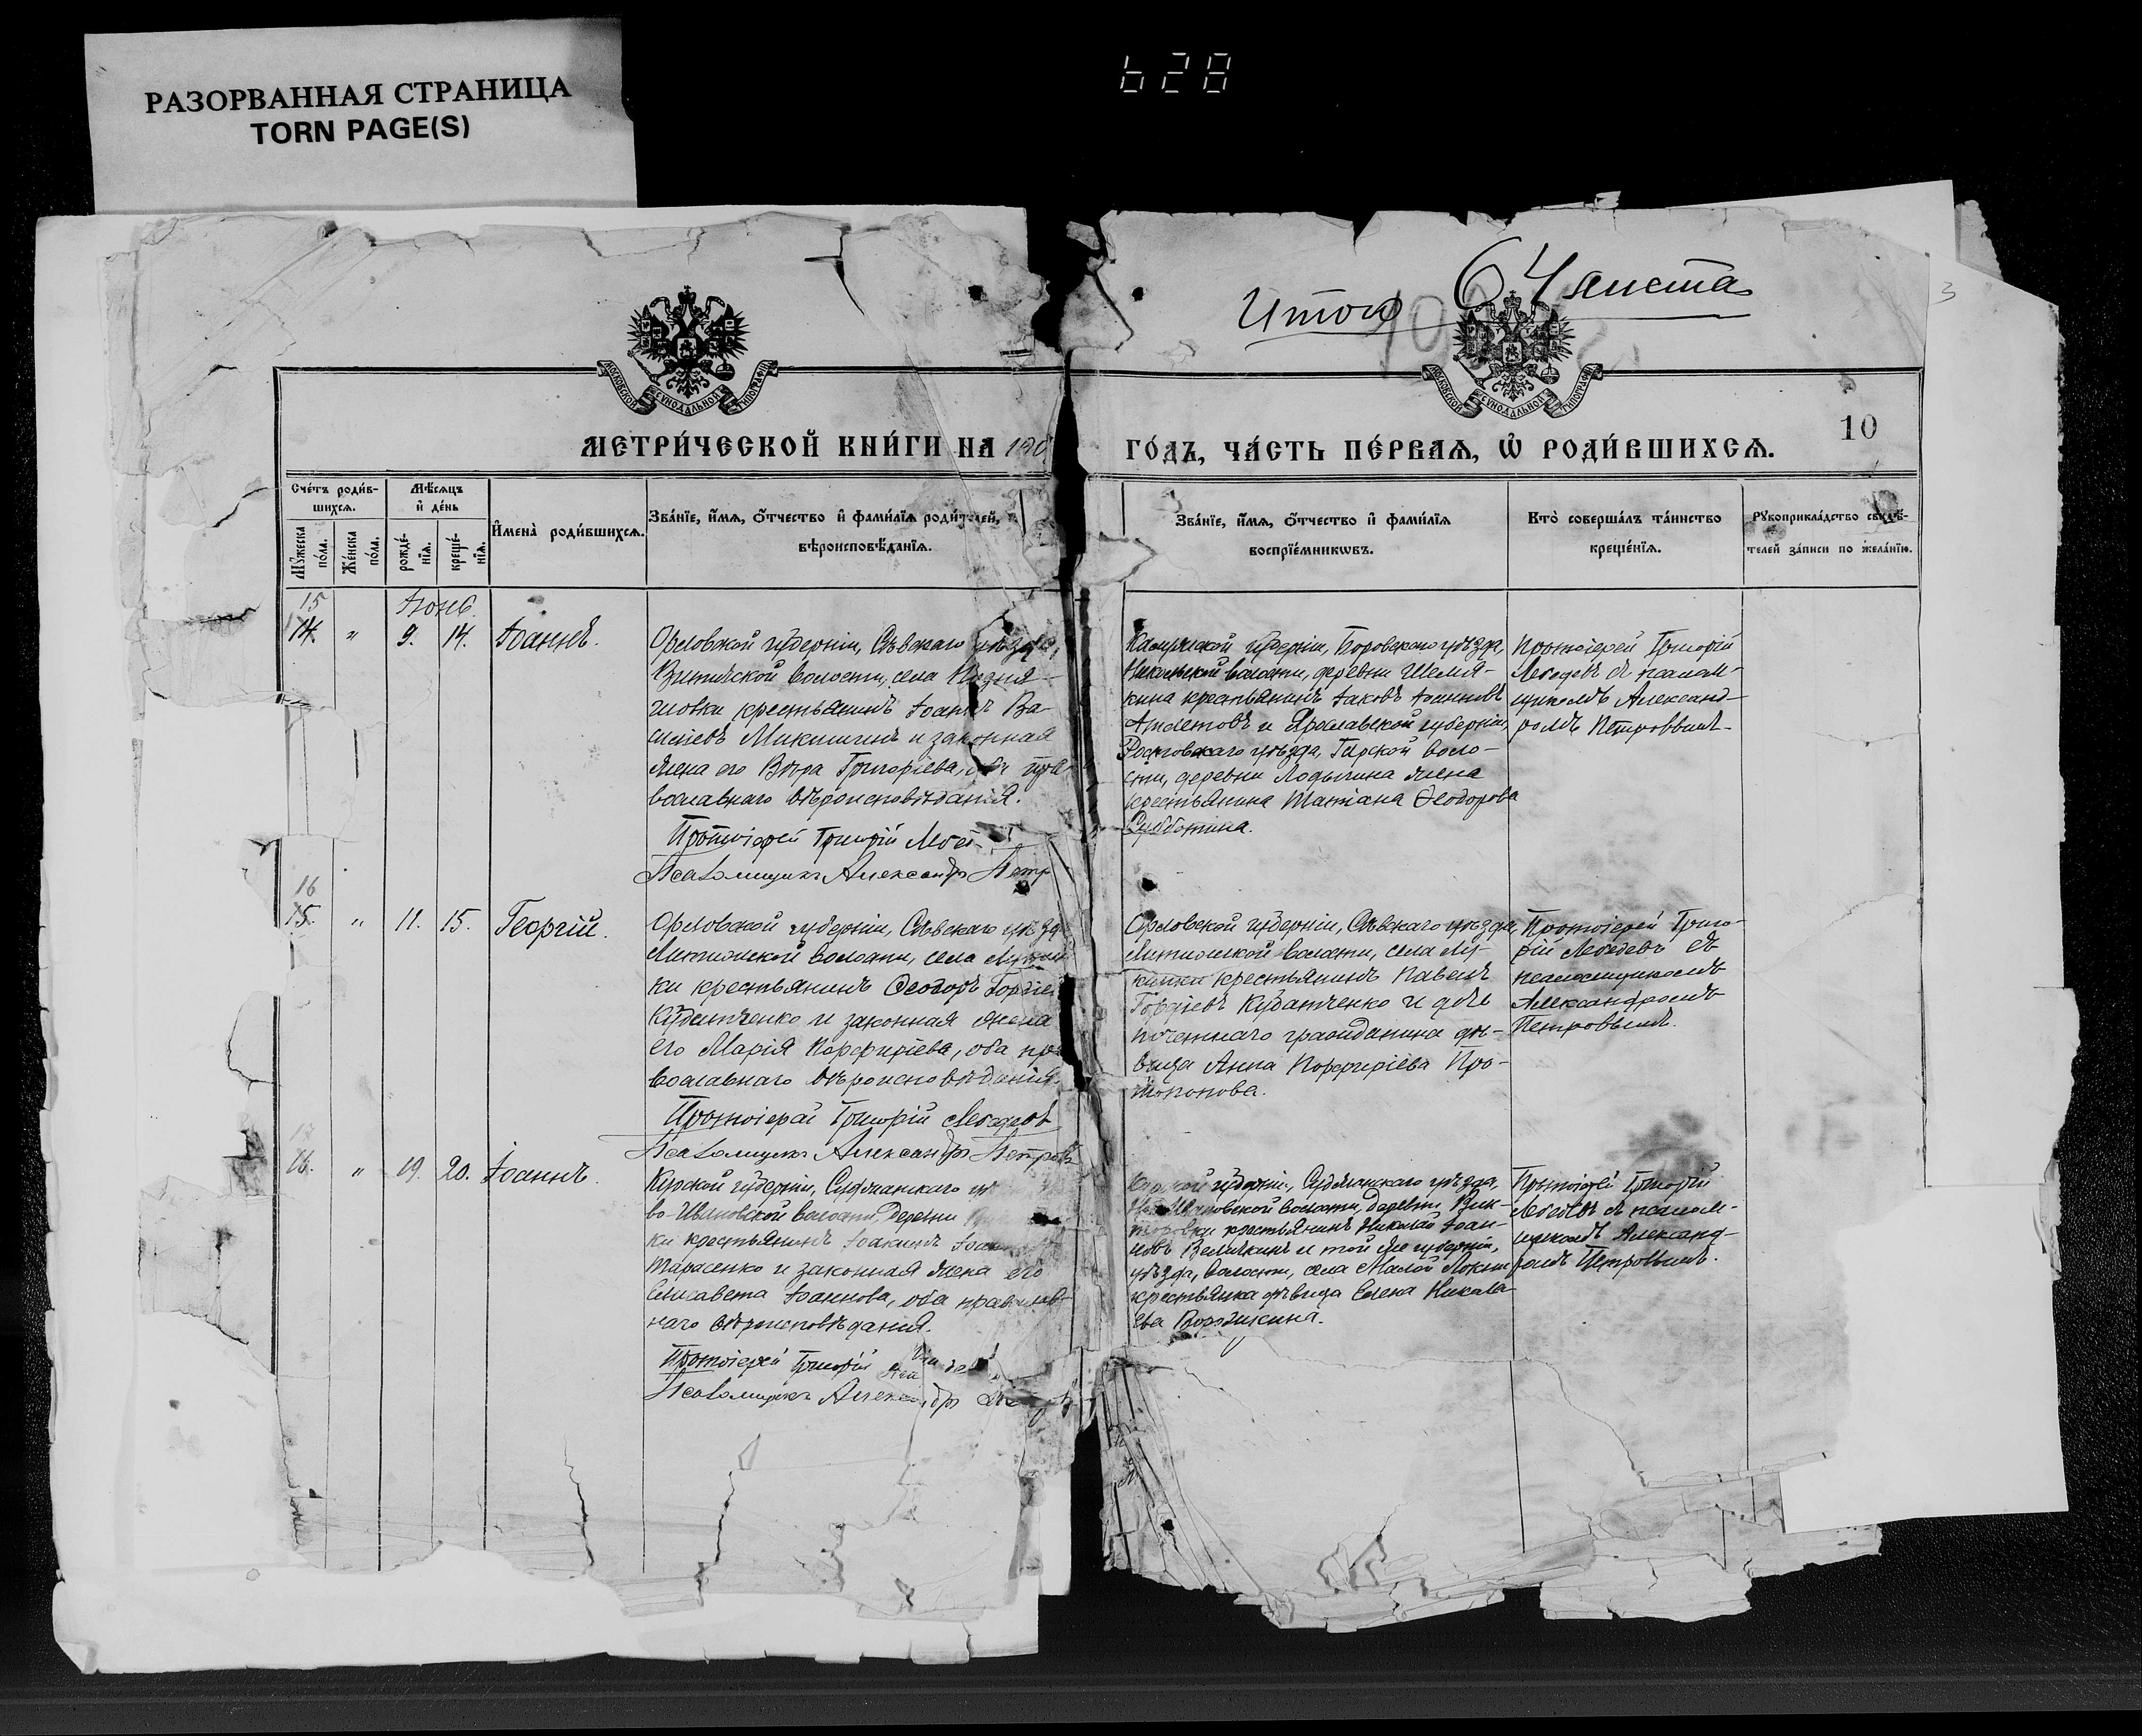 РАЗОРВАННАЯ СТРАНИЦА
TORN PAGE(S)
628
Итого 64 листа
МОСКОВСКОЙ СѴНОДАЛЬНОЙ ТИПОГРАФІИ
МОСКОВСКОЙ СѴНОДАЛЬНОЙ ТИПОГРАФІИ
10
МЕТРИ́ЧЕСКОЙ КНИ́ГИ НА 190
ГО́ДЪ, ЧА́СТЬ ПЕ́РВАѦ, Ѽ РОДИ́ВШИХСѦ.
Сче́тъ роди́в-
шихсѧ.
Мѣ́сѧцъ
и҆ де́нь
Мꙋ́жеска по́ла.
Же́нска по́ла.
рожде́-
нїѧ.
креще́-
нїѧ.
И҆мена̀ роди́вшихсѧ.
Зва́нїе, и҆́мѧ, ѻ҆́тчество и҆ фами́лїѧ роди́телей,
вѣроисповѣ́данїѧ.
Зва́нїе, и҆́мѧ, ѻ҆́тчество и҆ фами́лїѧ
воспрїе́мникѡвъ.
Кто̀ соверша́лъ та́инство
креще́нїѧ.
Рꙋкоприкла́дство свидѣ́-
телей за́писи по жела́нїю.
15
Іюнь
14. " 9. 14. Іоаннъ.
Орловской губерніи, Сѣвскаго уѣзда,
волости, села
крестьянинъ Іоаннъ Ва-
сильевъ Микишинъ и законная
жена его Вѣра Григоріева, оба пра-
вославнаго вѣроисповѣданія.
Протоіерей Григорій Лебед
Псаломщикъ Александръ Петр
Калужской губерніи, Боровскаго уѣзда,
Никольской волости, деревни Шемя-
кина крестьянинъ Іаковъ Іоанновъ
и Ярославской губерніи,
Ростовскаго уѣзда, воло-
сти, деревни Лодыгина жена
крестьянина Татіана Ѳеодорова
Субботина.
Протоіерей Григорій
Лебедевъ съ псалом-
щикомъ Александ-
ромъ Петровымъ.
16
15. " 11. 15. Георгій.
Орловской губерніи, Сѣвскаго уѣзда
волости, села
ки крестьянинъ Ѳеодоръ Гордіе
и законная жена
его Марія Порфиріева, оба пра
вославнаго вѣроисповѣданія.
Протоіерей Григорій Лебедевъ
Псаломщикъ Александръ Петровъ
Орловской губерніи, Сѣвскаго уѣзда,
волости, села
крестьянинъ Павелъ
Гордіевъ и дочь
почетнаго гражданина дѣ-
вица Анна Порфиріева Про-
топопова.
Протоіерей Григо-
рій Лебедевъ съ
псаломщикомъ
Александромъ
Петровымъ.
17
16. " 19. 20. Іоаннъ.
Курской губерніи, Суджанскаго уѣ
во-Ивановской волости, деревни
ки крестьянинъ Іоакимъ
Тарасенко и законная жена его
Елисавета Іоаннова, оба православ-
наго вѣроисповѣданія.
Протоіерей Григорій
Псаломщикъ Александръ
Курской губерніи, Суджанскаго уѣзда,
Ивановской волости, деревни Вик-
торовки крестьянинъ Николай Іоан-
новъ Величкинъ и той же губерніи,
уѣзда, волости, села Малой Локни
крестьянка дѣвица Елена Никола-
ева
Протоіерей Григорій
Лебедевъ съ псалом-
щикомъ Александ-
ромъ Петровымъ.